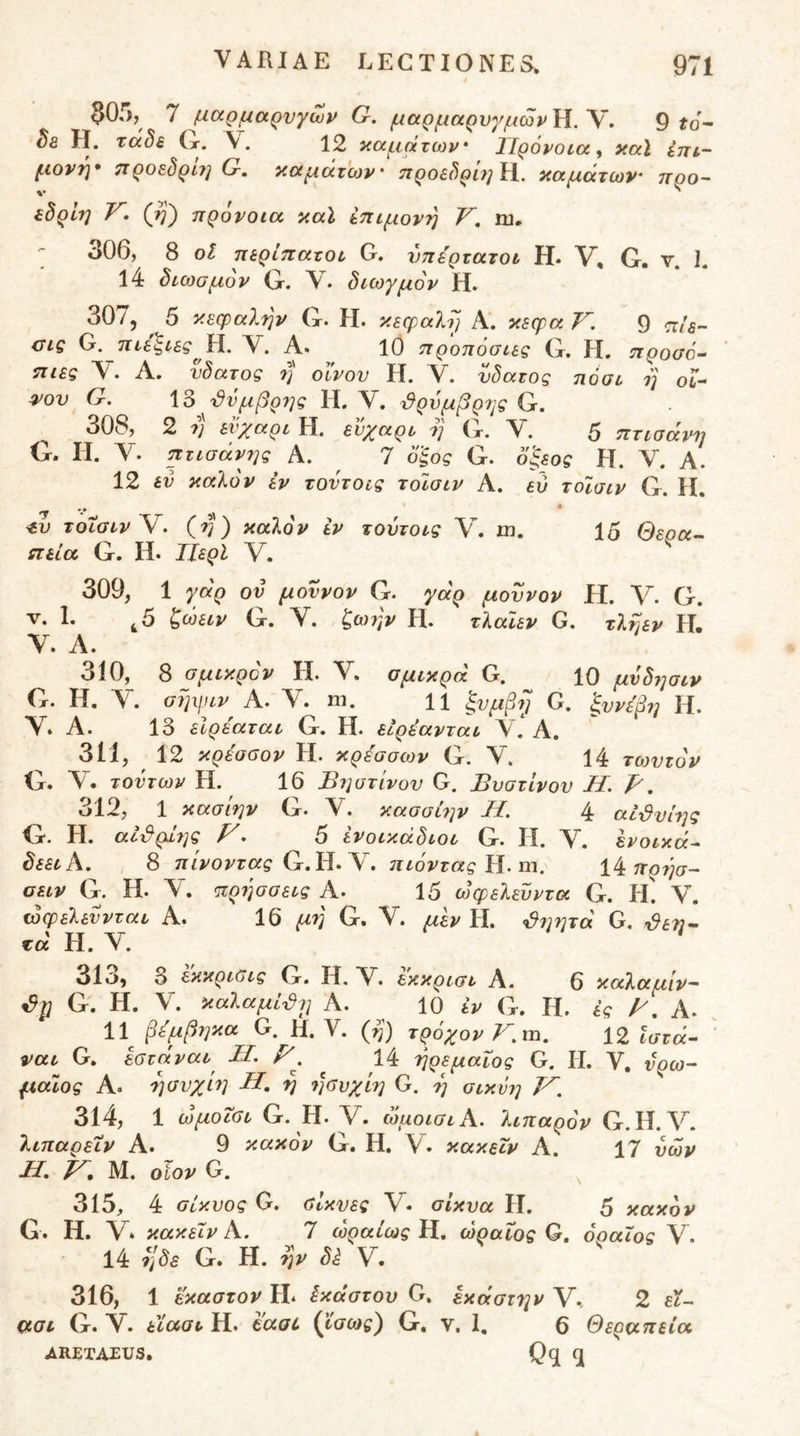 VARIAE LECTIONES. 971
305, 7 μαρμαρυγῶν G. μαρμαρυγμῶν H. V. 9 τό-
δε H. τάδε G. V. 12 καμάτων· Πρόνοια, καὶ ἐπι-
μονή· προεδρίη G. καμάτων· προεδρίη H. καμάτων· προ-
εδρίη V. (ἢ) πρόνοια καὶ ἐπιμονὴ V. m.
306, 8 οἱ περίπατοι G. ὑπέρτατοι H. V. G. v. l.
14 διωσμὸν G. V. διωγμὸν H.
307, 5 κεφαλὴν G. H. κεφαλῇ A. κεφα V. 9 πίε-
σις G. πιέξιες H. V. A. 10 προπόσιες G. H. προσό-
πιες V. A. ὕδατος ἢ οἴνου H. V. ὕδατος πόσι ἢ οἴ-
νου G. 13 θύμβρης H. V. θρύμβρης G.
308, 2 ἢ εὔχαρι H. εὔχαρι ἢ G. V. 5 πτισάνη
G. H. V. πτισάνης A. 7 ὄξος G. ὄξεος H. V. A.
12 εὖ καλὸν ἐν τούτοις τοῖσιν A. εὖ τοῖσιν G. H.
εὖ τοῖσιν V. (ἢ) καλὸν ἐν τούτοις V. m. 15 Θερα-
πεία G. H. Περὶ V.
309, 1 γὰρ οὐ μοῦνον G. γὰρ μοῦνον H. V. G.
v. l. 5 ζώειν G. V. ζωὴν H. τλαῖεν G. τλῆεν H.
V. A.
310, 8 σμικρὸν H. V. σμικρὰ G. 10 μύδησιν
G. H. V. σῆψιν A. V. m. 11 ξυμβῇ G. ξυνέβη H.
V. A. 13 εἰρέαται G. H. εἰρέανται V. A.
311, 12 κρέσσον H. κρέσσων G. V. 14 τωυτὸν
G. V. τούτων H. 16 Βηστίνου G. Βυστίνου H. V.
312, 1 κασίην G. V. κασσίην H. 4 αἰθυίης
G. H. αἰθρίης V. 5 ἐνοικάδιοι G. H. V. ἐνοικά-
δεει A. 8 πίνοντας G. H. V. πιόντας H. m. 14 πρήσ-
σειν G. H. V. πρήσσεις A. 15 ὠφελεῦντα G. H. V.
ὠφελεῦνται A. 16 μὴ G. V. μὲν H. θηητὰ G. θεη-
τὰ H. V.
313, 3 ἔκκρισις G. H. V. ἔκκρισι A. 6 καλαμίν-
θῃ G. H. V. καλαμίθῃ A. 10 ἐν G. H. ἐς V. A.
11 βέμβηκα G. H. V. (ἢ) τρόχον V. m. 12 ἱστά-
ναι G. ἑστάναι H. V. 14 ἠρεμαῖος G. H. V. ὑρω-
μαῖος A. ἡσυχίη H. ἢ ἡσυχίη G. ἢ σικύη V.
314, 1 ὠμοῖσι G. H. V. ὤμοισι A. λιπαρὸν G. H. V.
λιπαρεῖν A. 9 κακὸν G. H. V. κακεῖν A. 17 ὑῶν
H. V. M. οἷον G.
315, 4 σίκυος G. σίκυες V. σίκυα H. 5 κακὸν
G. H. V. κακεῖν A. 7 ὡραίως H. ὡραῖος G. ὁραῖος V.
14 ἥδε G. H. ἢν δὲ V.
316, 1 ἕκαστον H. ἑκάστου G. ἑκάστην V. 2 εἴ-
ασι G. V. εἴασι H. ἔασι (ἴσως) G. v. l. 6 Θεραπεία
ARETAEUS. Qq q